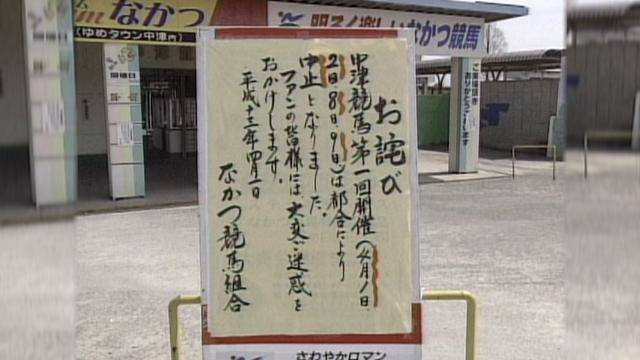 なかつ
(ゆめタウン中津内)
明るく楽しいなかつ競馬
開催日
ご来場頂き
ありがとうございます
お詫び
中津競馬第一回開催(4月1日、
2日、8日、9日)は都合により
中止となりました。
ファンの皆様には大変ご迷惑を
おかけします。
平成十三年四月一日
なかつ競馬組合
さわやかロマン